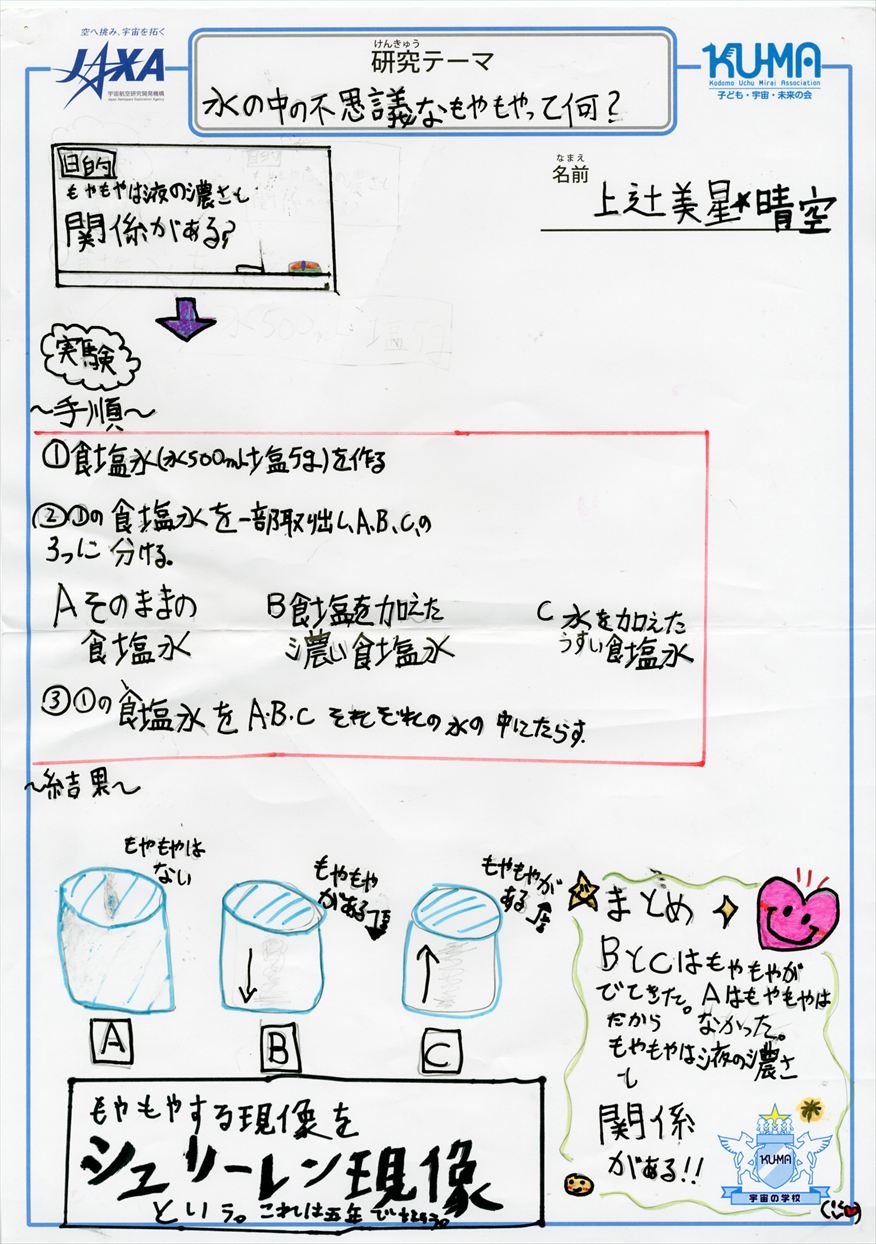 空へ挑み、宇宙を拓く
JAXA
宇宙航空研究開発機構
Japan Aerospace Exploration Agency
けんきゅう
研究テーマ
水の中の不思議なもやもやって何?
KU-MA
Kodomo Uchu Mirai Association
子ども・宇宙・未来の会
なまえ
名前
上辻美星★晴空
目的
もやもやは液の濃さと
関係がある?
実験
~手順~
①食塩水(水500mL塩5g)を作る
②①の食塩水を一部取り出し、A、B、C、の
3つに分ける。
Aそのままの
食塩水
B食塩を加えた
濃い食塩水
C 水を加えた
うすい食塩水
③①の食塩水をA・B・Cそれぞれの水の中にたらす。
~結果~
もやもやは
ない
もやもや
がある下
もやもやが
ある上
A
B
C
まとめ
BとCはもやもやが
でてきた。Aはもやもやは
なかった。
だから
もやもやは液の濃さ
と
関係
がある!!
もやもやする現像を
シュリーレン現像
という。これは五年で
KU-MA
宇宙の学校